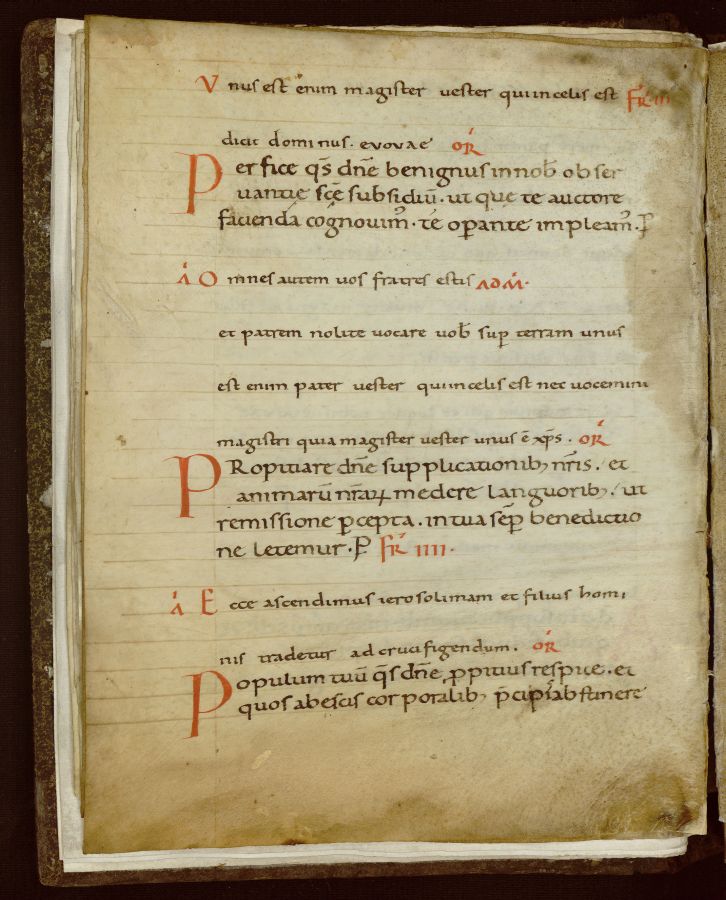 Vnus est enim magister uester qui incelis est FR III
dicit dominus. evovae OR
Perfice qs dne benignus in nob obser
uantie sce subsidiu. ut que te auctore
facienda cognouim. te operante impleam. P
A Omnes autem uos fratres estis ADM.
et patrem nolite uocare uob sup terram unus
est enim pater uester qui incelis est nec uocemini
magistri quia magister uester unus e xps. OR
PRopitiare dne supplicationib; nris. et
animaru nraꝝ medere languorib;. ut
remissione pcepta. intua semp benedictio
ne letemur. P FR IIII.
A Ecce ascendimus ierosolimam et filius homi
nis tradetur ad crucifigendum. OR
Populum tuu qs dne ppitius respice. et
quos ab escis corporalib; pcipis abstinere